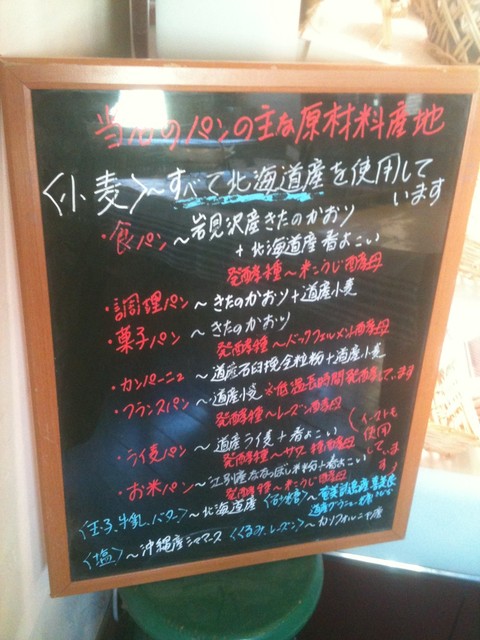 当店のパンの主な原材料産地
〈小麦〉～すべて北海道産を使用して
います
・食パン～岩見沢産きたのかおり
+北海道産春よこい
発酵種～米こうじ酵母
・調理パン～きたのかおり+道産小麦
・菓子パン～きたのかおり
発酵種～ホップフェルメント酵母
・カンパーニュ～道産石臼挽全粒粉+道産小麦
・フランスパン～道産小麦 ※低温長時間発酵しています
発酵種～レーズン酵母
・ライ麦パン～道産ライ麦+春よこい
発酵種～サワー種酵母
・お米パン～江別産ななつぼし米粉+春よこい
発酵種～米こうじ酵母
(イーストも
使用
していま
す)
〈玉子、牛乳、バター〉～北海道産〈砂糖〉～
〈塩〉～沖縄産シママース〈くるみ、レーズン〉～カリフォルニア産